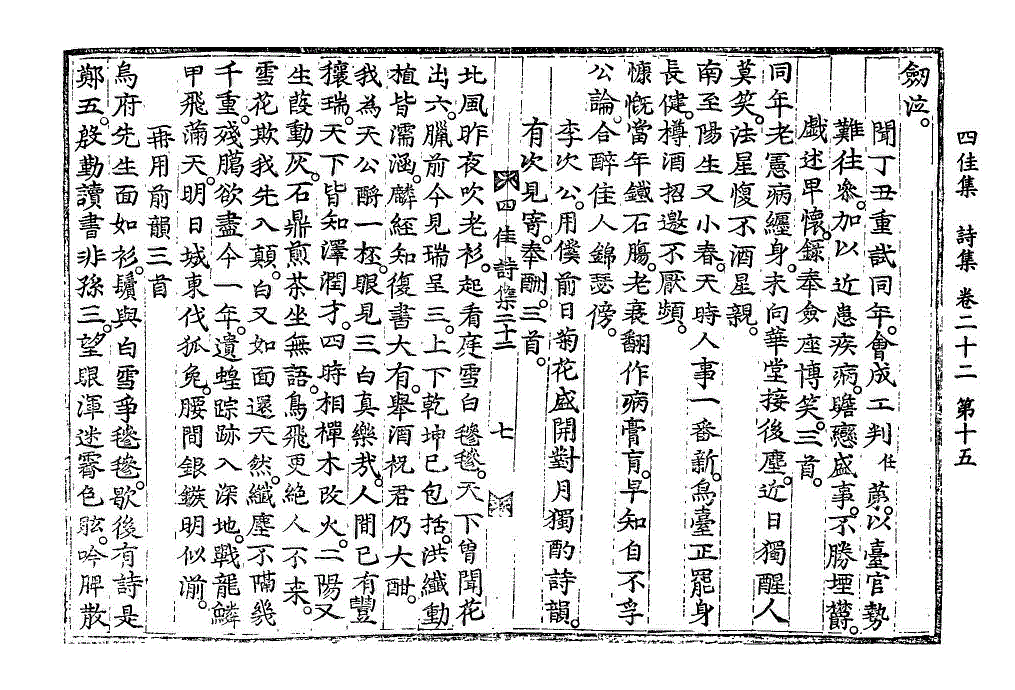 四佳集　詩集 卷二十二 第十五
劒泣。
聞丁丑重試同年。會成工判任苐。以臺官勢
難往參。加以近患疾病。瞻戀盛事。不勝堙欝。
戱述甲懷。錄奉僉座博笑。三首。
同年老憲病纏身。未向華堂接後塵。近日獨醒人
莫笑。法星愎不酒星親。
南至陽生又小春。天時人事一番新。烏臺正罷身
長健。樽酒招邀不厭頻。
慷慨當年鐵石膓。老衰翻作病膏肓。早知自不孚
公論。合醉佳人錦瑟傍。
李次公。用僕前日菊花盛開對月獨酌詩韻。
有次見寄。奉酬。三首。
四佳詩集二十二　七
北風昨夜吹老衫。起看庭雪白毿毿。天下曾聞花
出六。臘前今見瑞呈三。上下乾坤已包括。洪纖動
植皆濡涵。麟經知復書大有。舉酒祝君仍大酣。
我為天公酹一桮。眼見三白真樂㦲。人間已有豐
穰瑞。天下皆知澤潤才。四時相禪木改火。二陽又
生葭動灰。石鼎煎茶坐無語。鳥飛更絶人不来。
雪花欺我先入顛。白又如面還天然。纖塵不隔幾
千重。殘臈欲盡今一年。遺蝗踪跡入深地。戰龍鱗
甲飛滿天。明日城東伐狐兔。腰間銀鏃明似湔。
再用前韻三首
烏府先生面如衫。鬚與白雪爭毿毿。歇後有詩是
鄭五。啟勤讀書非孫三。望眼渾迷霽色眩。吟脾散